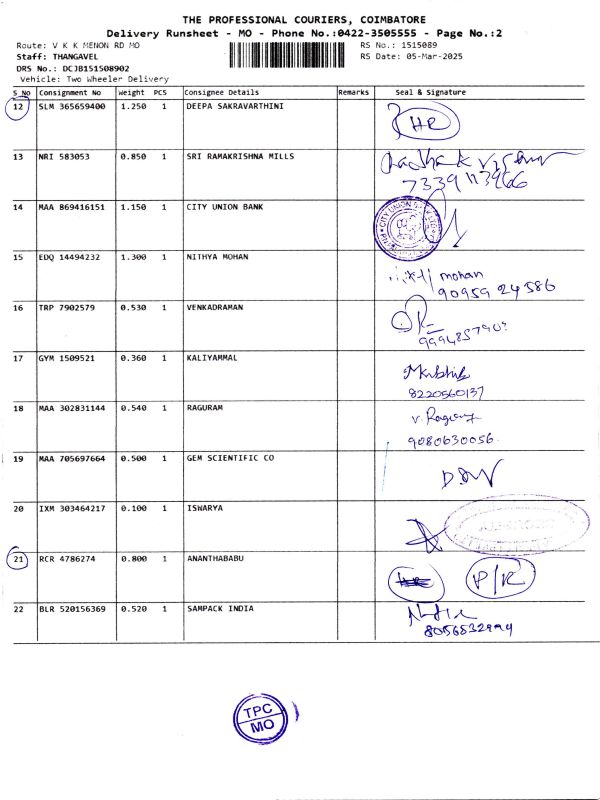 THE PROFESSIONAL COURIERS, COIMBATORE
Delivery Runsheet - MO - Phone No.:0422-3505555 - Page No.:2
Route: V K K MENON RD MO RS No.: 1515089
Staff: THANGAVEL RS Date: 05-Mar-2025
DRS No.: DCJB151508902
Vehicle: Two Wheeler Delivery
S_No Consignment No Weight PCS Consignee Details Remarks Seal & Signature
12 SLM 365659400 1.250 1 DEEPA SAKRAVARTHINI
HR
13 NRI 583053 0.850 1 SRI RAMAKRISHNA MILLS
7339113966
14 MAA 869416151 1.150 1 CITY UNION BANK
CITY UNION
15 EDQ 14494232 1.300 1 NITHYA MOHAN
mohan
90959 24586
16 TRP 7902579 0.530 1 VENKADRAMAN
17 GYM 1509521 0.360 1 KALIYAMMAL
8220560137
18 MAA 302831144 0.540 1 RAGURAM
9080630056
19 MAA 705697664 0.500 1 GEM SCIENTIFIC CO
20 IXM 303464217 0.100 1 ISWARYA
21 RCR 4786274 0.800 1 ANANTHABABU
P/R
22 BLR 520156369 0.520 1 SAMPACK INDIA
8056532994
TPC
MO